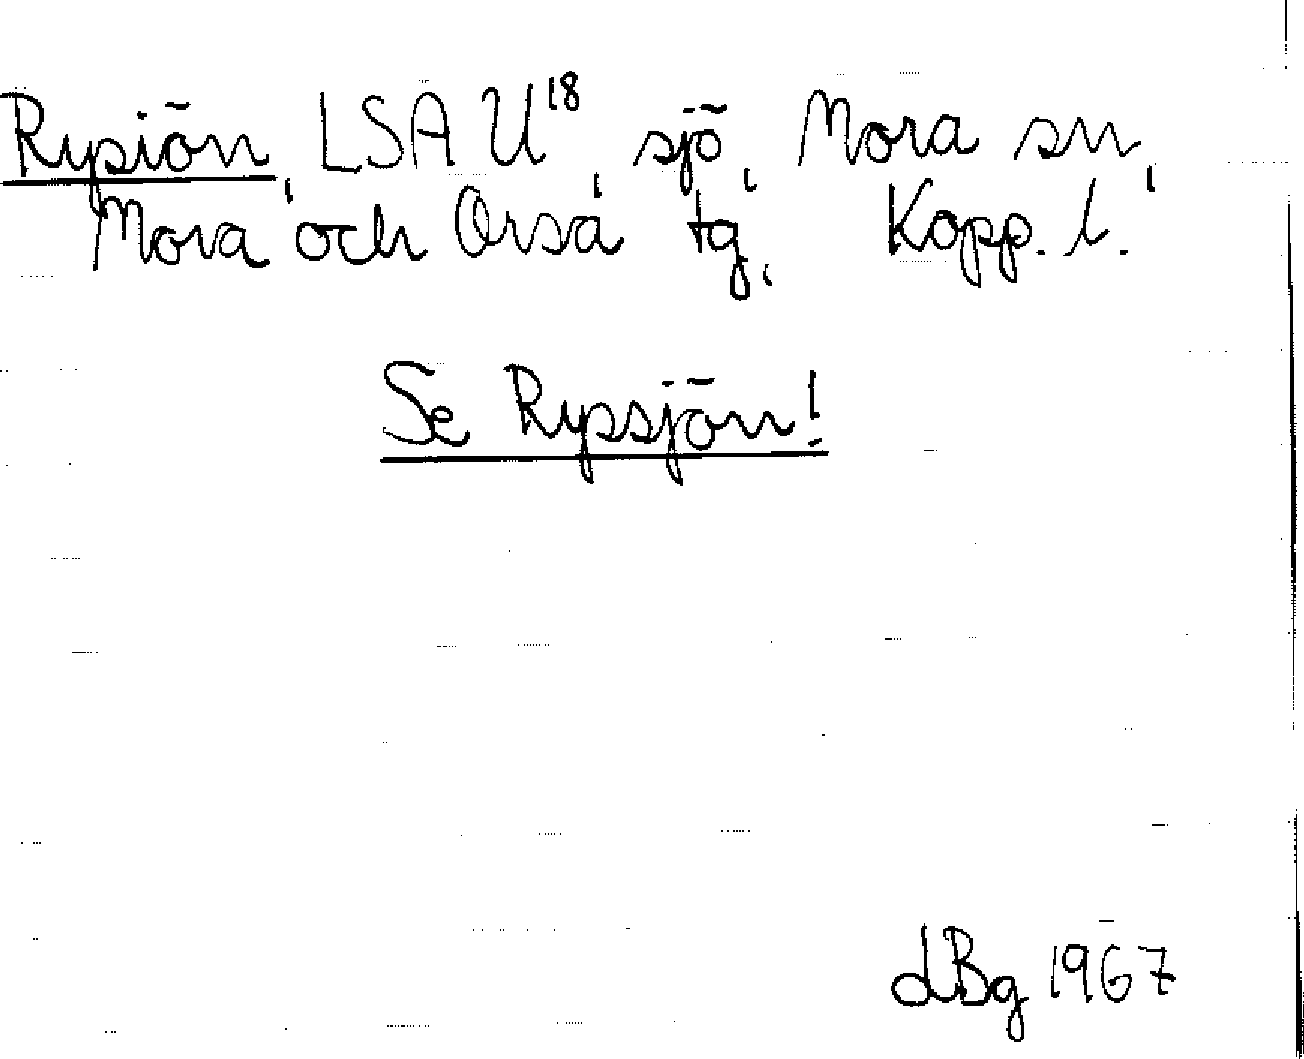 Rysiön, LSA U18, sjö, Mora sn,
Mora och Orsa tg, Kopp. l.
Se Ryssjön!
dBg 1967